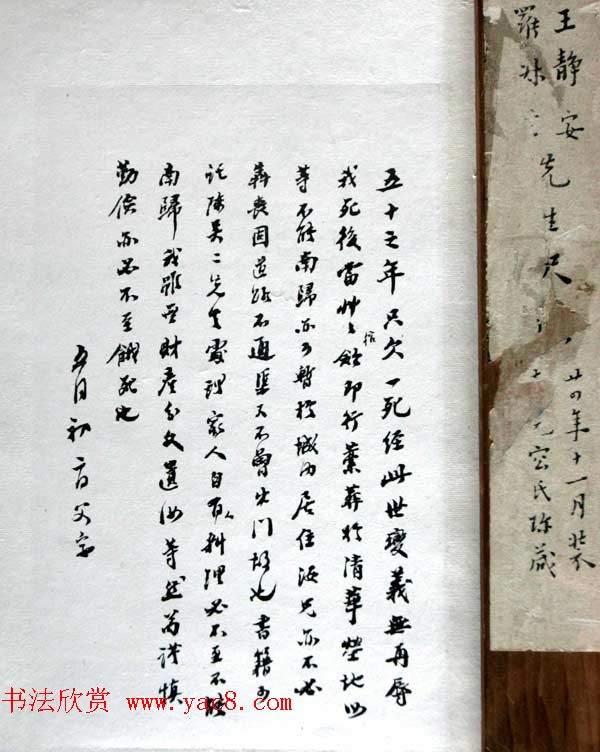 王靜安
羅叔言先生尺
廿四年十一月裝
氏珍藏
五十之年只欠一死經此世變義無再辱
我死後當草々棺歛即行藁葬於清華塋地汝
等不能南歸亦可暫於城內居住汝兄亦不必
奔喪因道路不通渠又不曾出門故也書籍可
託陳吳二先生處理家人自有人料理必不至不能
南歸我雖無財產分文遺汝等然苟謹慎
勤儉亦必不至餓死也
五月初二日父字
书法欣赏 www.yac8.com